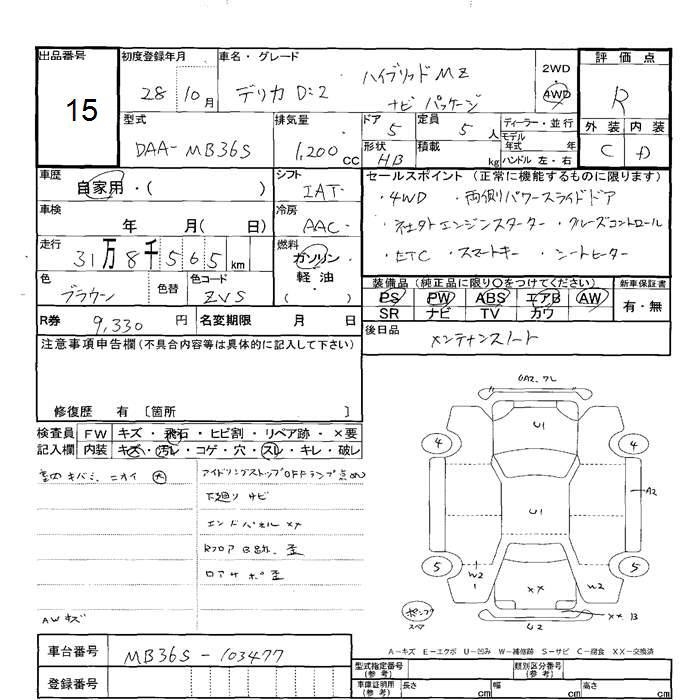 出品番号 初度登録年月 車名・グレード 評価点
15
28 10月 デリカ D:2 ハイブリッド MZ ナビ パッケージ
2WD 4WD
R
外装 内装
C D
型式 排気量 ドア 定員 ディーラー・並行
DAA- MB36S 1,200 cc 5 5 人
モデル年式 年式
形状 HB 積載 kg ハンドル 左・右
車歴 シフト セールスポイント (正常に機能するものに限ります)
自家用・( ) IAT
・4WD ・両側パワースライドドア
車検 冷房
年 月( 日) AAC
・社外エンジンスターター ・クルーズコントロール
走行 燃料
31万8千565km ガソリン 軽油 ( )
・ETC ・スマートキー ・シートヒーター
色 色替 色コード
ブラウン ZVS
装備品 (純正品に限り〇をつけてください) 新車保証書
PS PW ABS エアB AW
SR ナビ TV カワ
有・無
R券 9,330 円 名変期限 月 日
後日品 メンテナンスノート
注意事項申告欄 (不具合内容等は具体的に記入して下さい)
修復歴 有 〔箇所 〕
検査員 FW キズ・飛石・ヒビ割・リペア跡・×要
記入欄 内装 キズ・汚レ・コゲ・穴・スレ・キレ・破レ
室内キバミ、ニオイ 大
アイドリングストップOFFランプ点めつ
下廻り サビ
エンドパネル XX
Rフロア 歪
ロアサポ歪
AW キズ
UA2. ワレ
U1
4 4
A2
U1
5 5
W2 1
XX
W2
XX B
U2
ポンプ
スペア
A-キズ E-エクボ U-凹み W-補修跡 S-サビ C-腐食 XX-交換済
車台番号 MB36S - 103477
登録番号
型式指定番号 (参考) 類別区分番号 (参考)
車庫証明用 (参考) 長さ cm 幅 cm 高さ cm